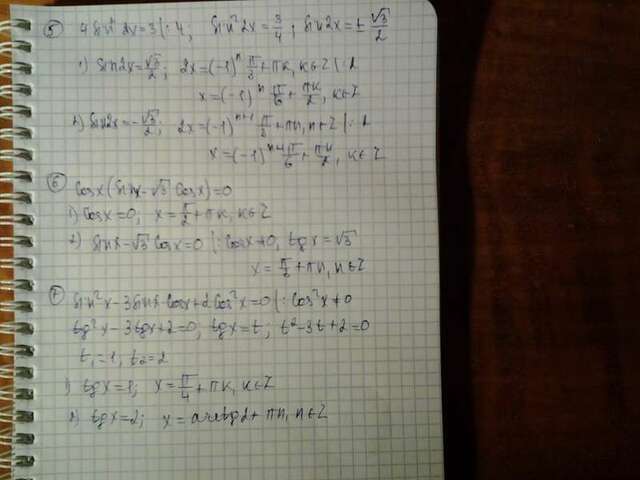 ⑤ 4 sin² 2x = 3 |: 4; sin² 2x = 3/4; sin 2x = ± √3/2
1) sin 2x = √3/2; 2x = (-1)ⁿ π/3 + πk, k∈Z |: 2
x = (-1)ⁿ π/6 + πk/2, k∈Z
2) sin 2x = -√3/2; 2x = (-1)ⁿ⁺¹ π/3 + πn, n∈Z |: 2
x = (-1)ⁿ⁺¹ π/6 + πn/2, k∈Z
⑥ cosx (sinx - √3 cosx) = 0
1) cosx = 0; x = π/2 + πk, k∈Z
2) sinx - √3 cosx = 0 |: cosx ≠ 0, tgx = √3
x = π/3 + πn, n∈Z
sin²x - 3 sinx cosx + 2 cos²x = 0 |: cos²x ≠ 0
tg²x - 3tgx + 2 = 0; tgx = t; t² - 3t + 2 = 0
t₁ = 1, t₂ = 2
1) tgx = 1; x = π/4 + πk, k∈Z
2) tgx = 2; x = arctg2 + πn, n∈Z